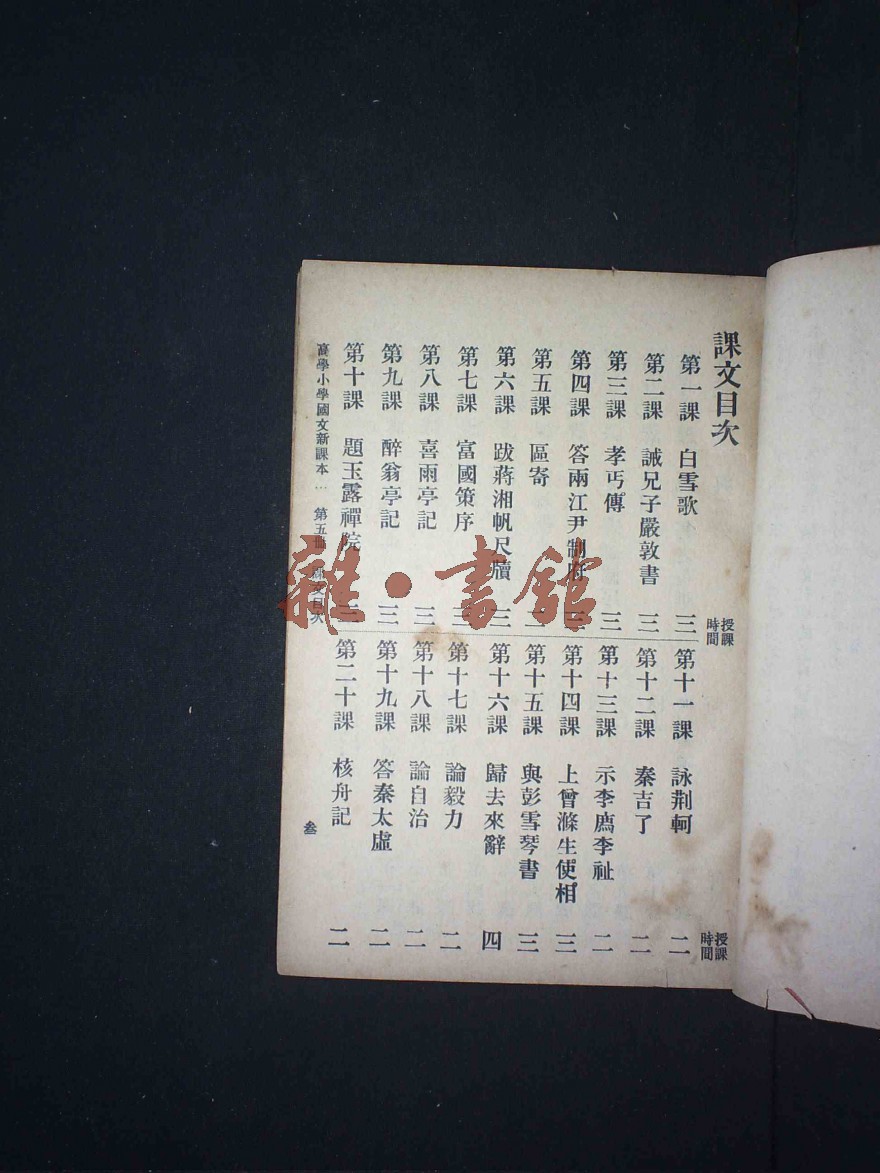 課文目次
授課時間
第一課 白雪歌 三
第二課 誡兄子嚴敦書 三
第三課 孝丐傳 三
第四課 答兩江尹制府 三
第五課 區寄
第六課 跋蔣湘帆尺牘 三
第七課 富國策序 三
第八課 喜雨亭記 三
第九課 醉翁亭記 三
第十課 題玉露禪院 三
授課時間
第十一課 詠荆軻 二
第十二課 秦吉了 二
第十三課 示李廌李祉 二
第十四課 上曾滌生使相 三
第十五課 與彭雪琴書 三
第十六課 歸去來辭 四
第十七課 論毅力 二
第十八課 論自治 二
第十九課 答秦太虛 二
第二十課 核舟記 二
高學小學國文新課本 … 第五冊 課文目次
叁
雜·書館